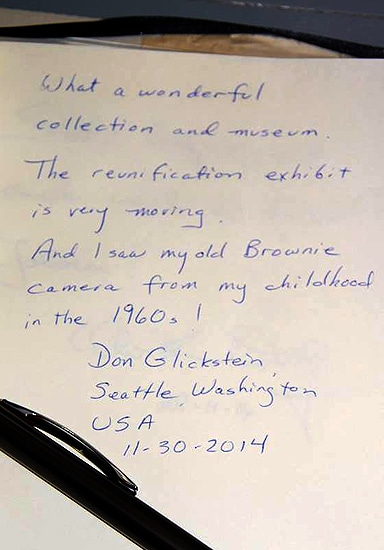 What a wonderful
collection and museum.
The reunification exhibit
is very moving.
And I saw my old Brownie
camera from my childhood
in the 1960s!
Don Glickstein,
Seattle, Washington
USA
11-30-2014